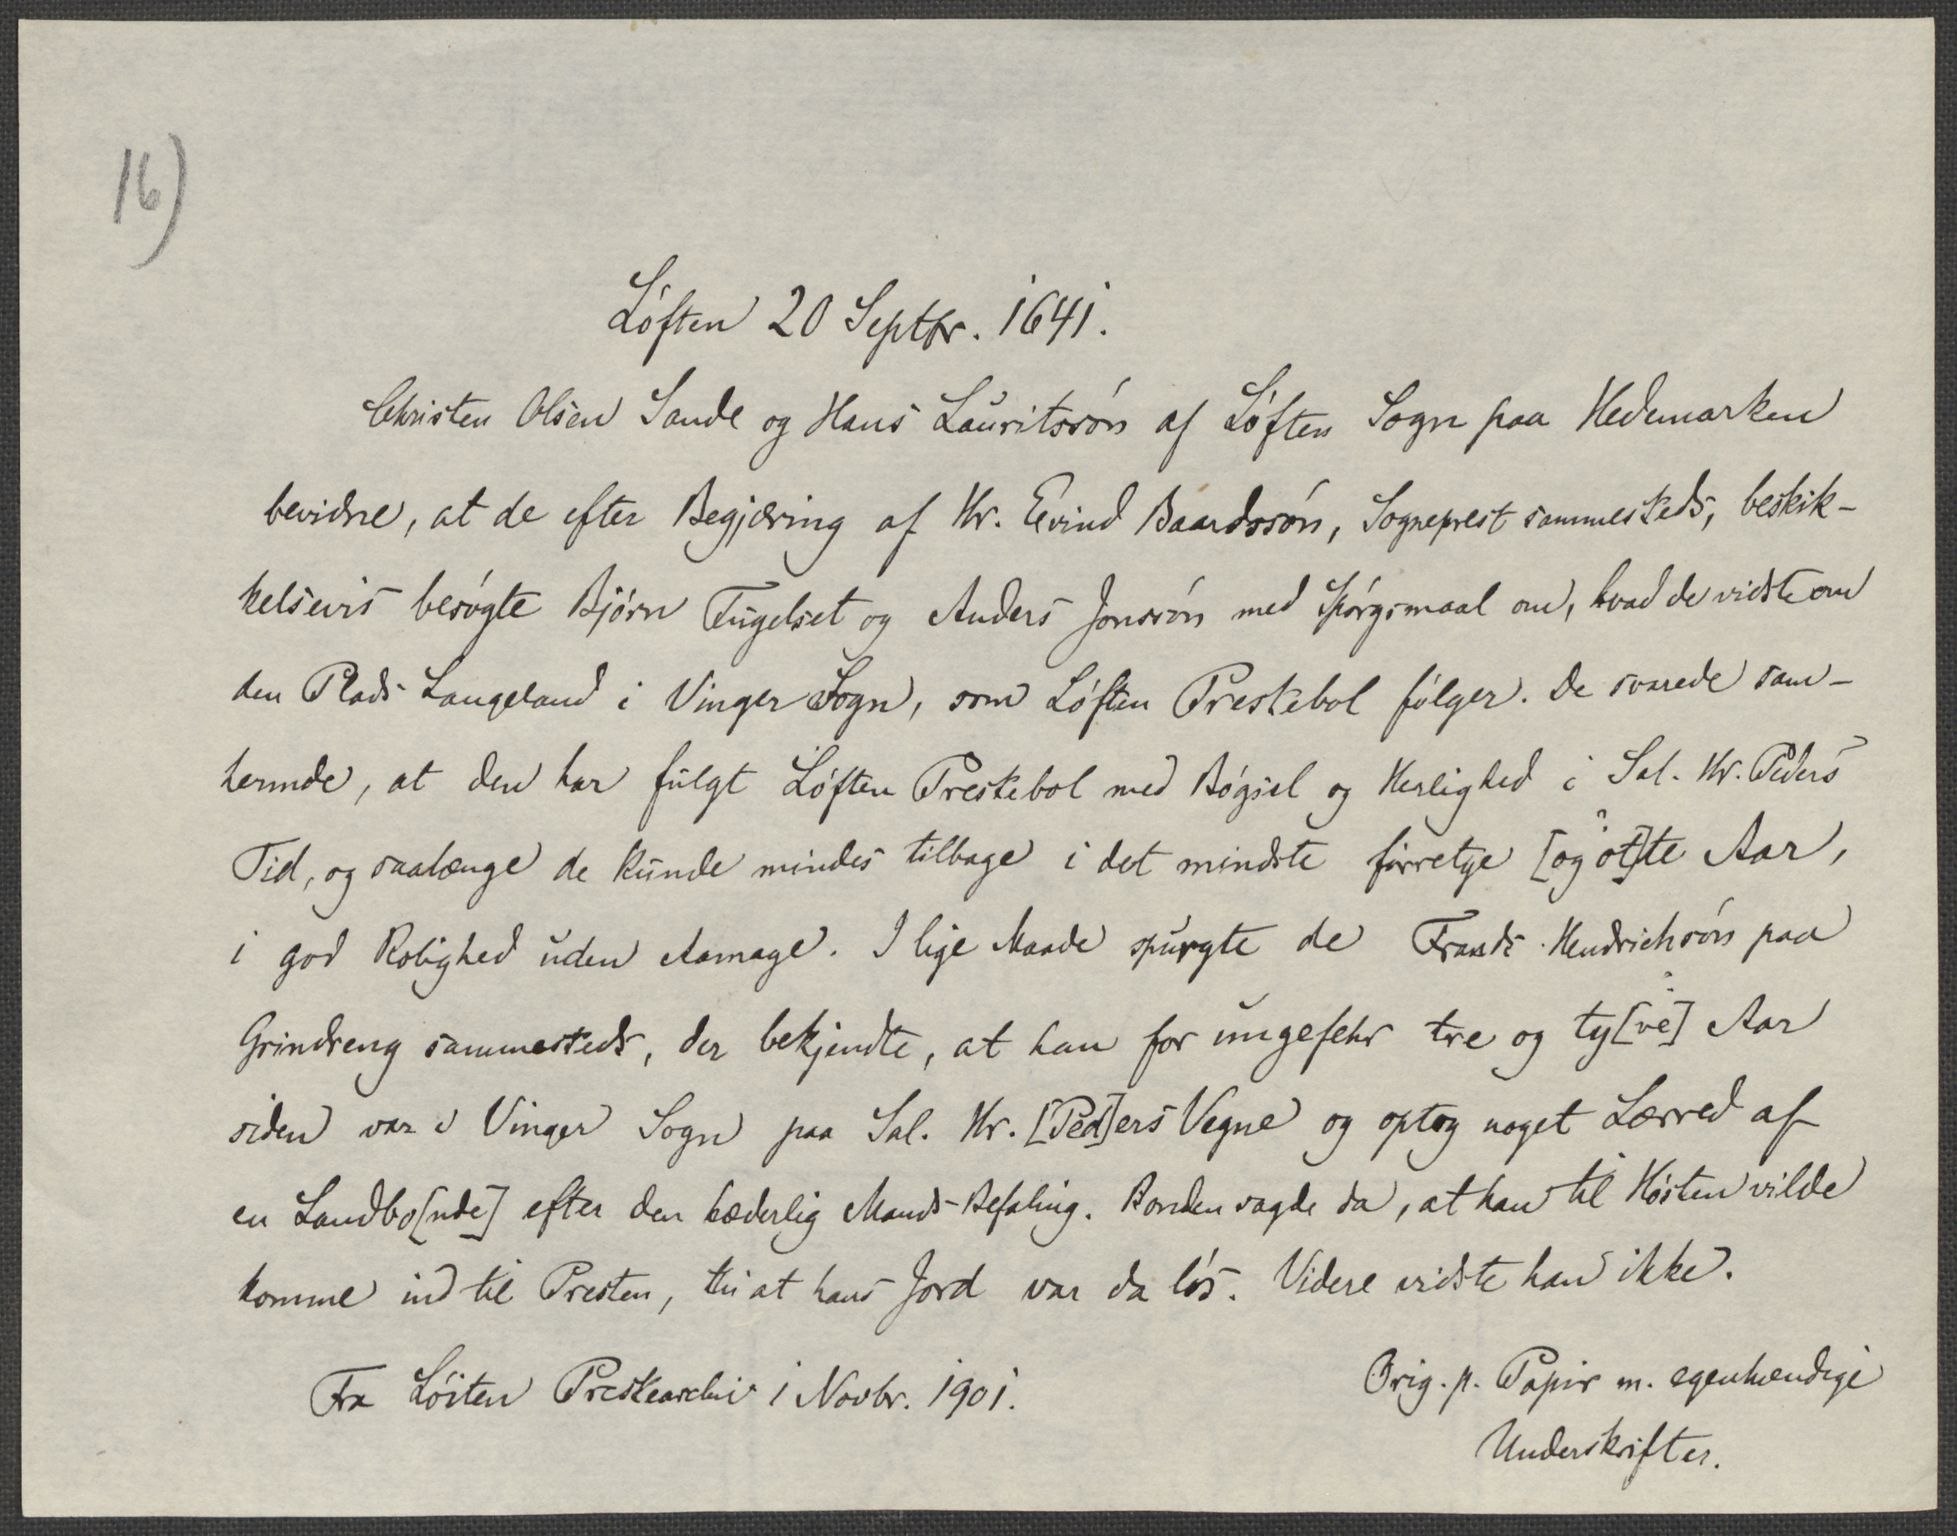 16)
Løften 20 Septbr. 1641.
Christen Olsen Sande og Hans Lauritssøn af Løften Sogn paa Hedemarken
bevidne, at de efter Begjæring af Hr. Eivind Baardssøn, Sogneprest sammesteds, beskik-
kelsevis besøgte Bjørn Fugelset og Anders Jonssøn med Spørgsmaal om, hvad de vidste om
den Plads Langeland i Vinger Sogn, som Løften Prestebol følger. De svarede sam-
herude, at den har fulgt Løften Prestebol med Bøgsel og Herlighed i Sal. Hr. Peders
Tid, og saalænge de kunde mindes tilbage i det mindsteførretye [og ot]te Aar,
i god Rolighed uden Aamage. I lige Maade spurgte de Frands Hendrichsøn paa
Grindreng sammesteds, der bekjendte, at han for ungefehr tre og ty[ve] Aar
siden var i Vinger Sogn paa Sal. Hr. [Ped]ers Vegne og optog noget Lærred af
en Landbo[nde] efter den hæderlig Mands Befaling. Bonden sagde da, at han til Høsten vilde
komme ind til Presten, thi at hans Jord var da løs. Videre vidste han ikke.
Fra Løiten Prestearchiv i Novbr. 1901.
Orig. p. Papir m. egenhændige
Underskrifter.